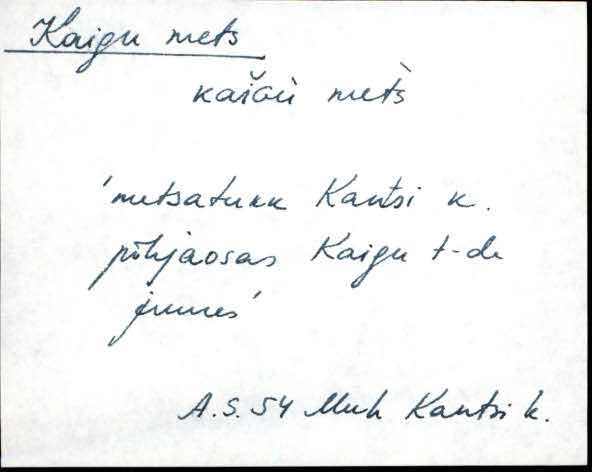 Kaigu mets
kaiɢu met̀s
'metsatukk Kantsi k.
põhjaosas Kaigu t-de
juures'
A.S. 54 Muh Kantsi k.